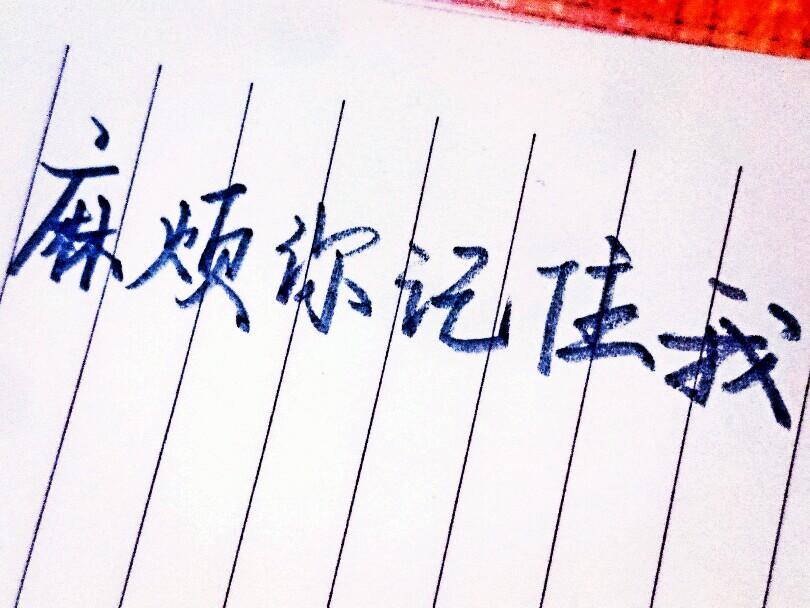 麻烦你记住我